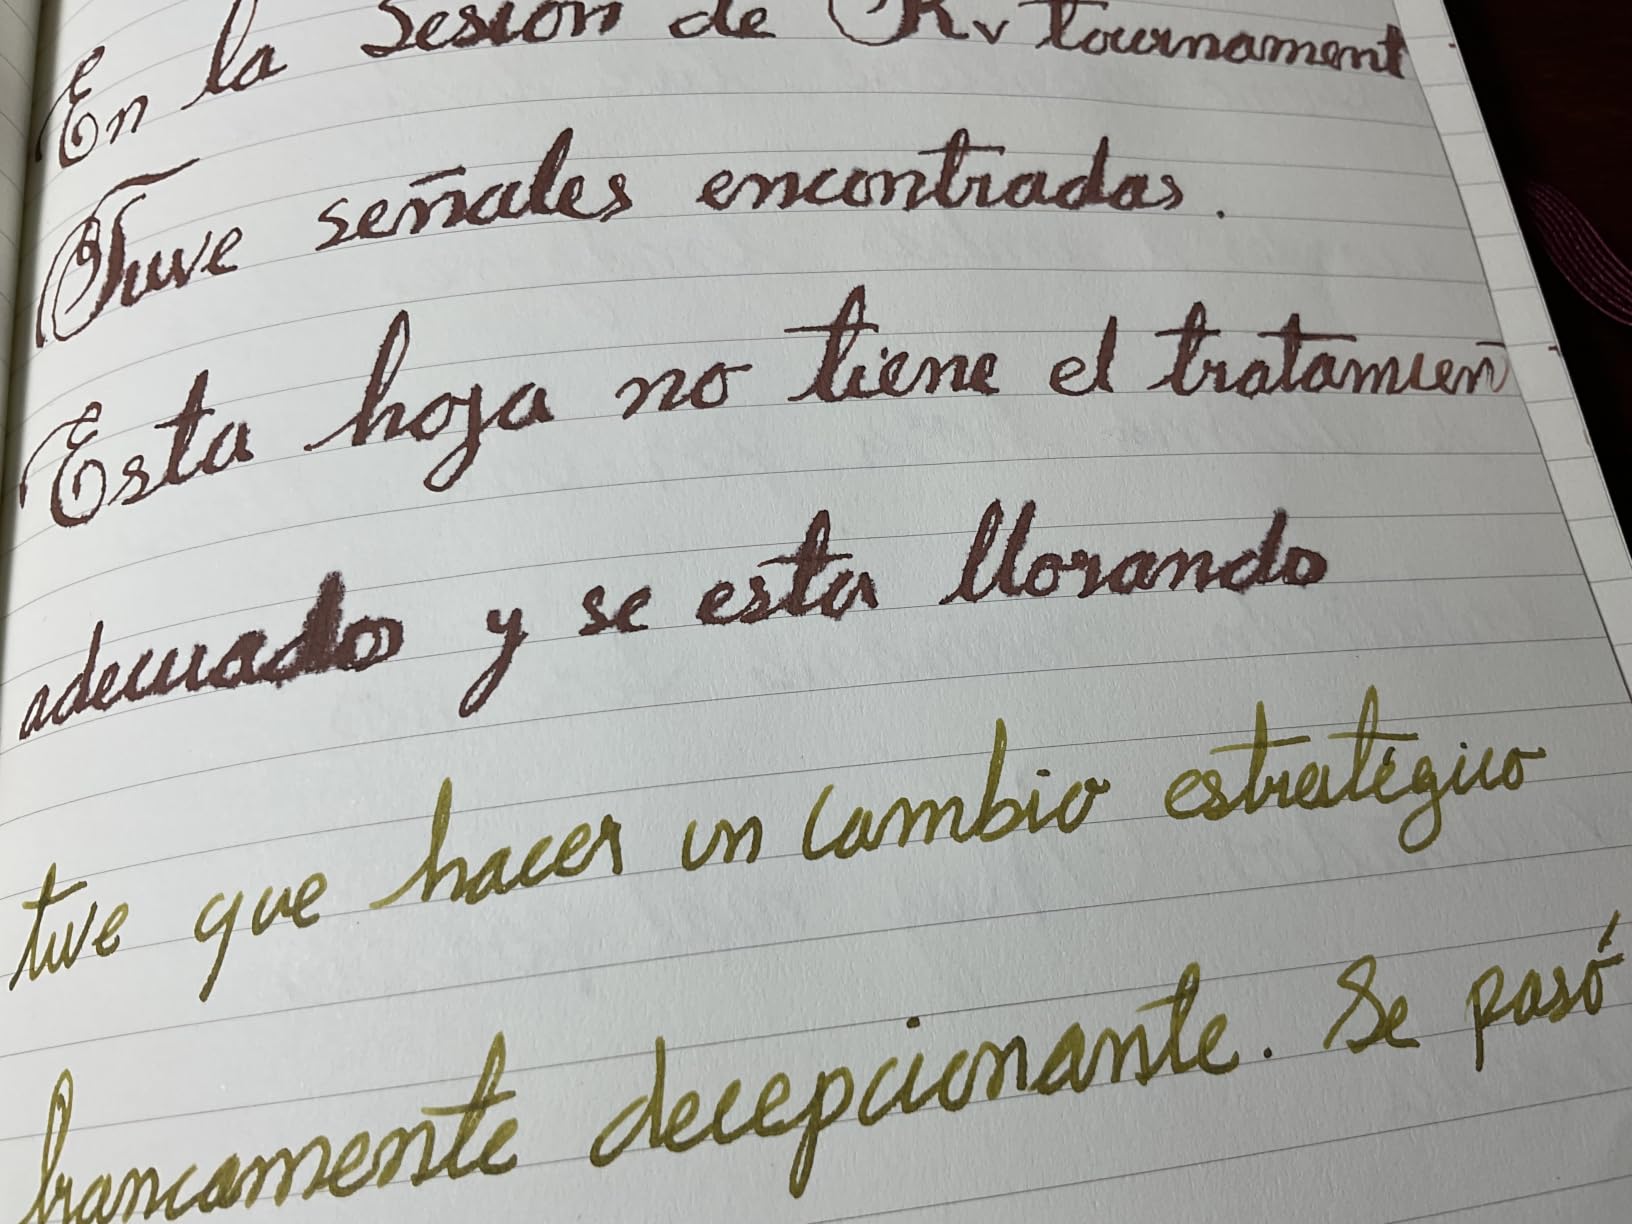 En la Sesión de Rv tournament
Tuve señales encontradas.
Esta hoja no tiene el tratamien
adecuado y se esta llorando
tuve que hacer un cambio estratégico
francamente decepcionante. Se pasó